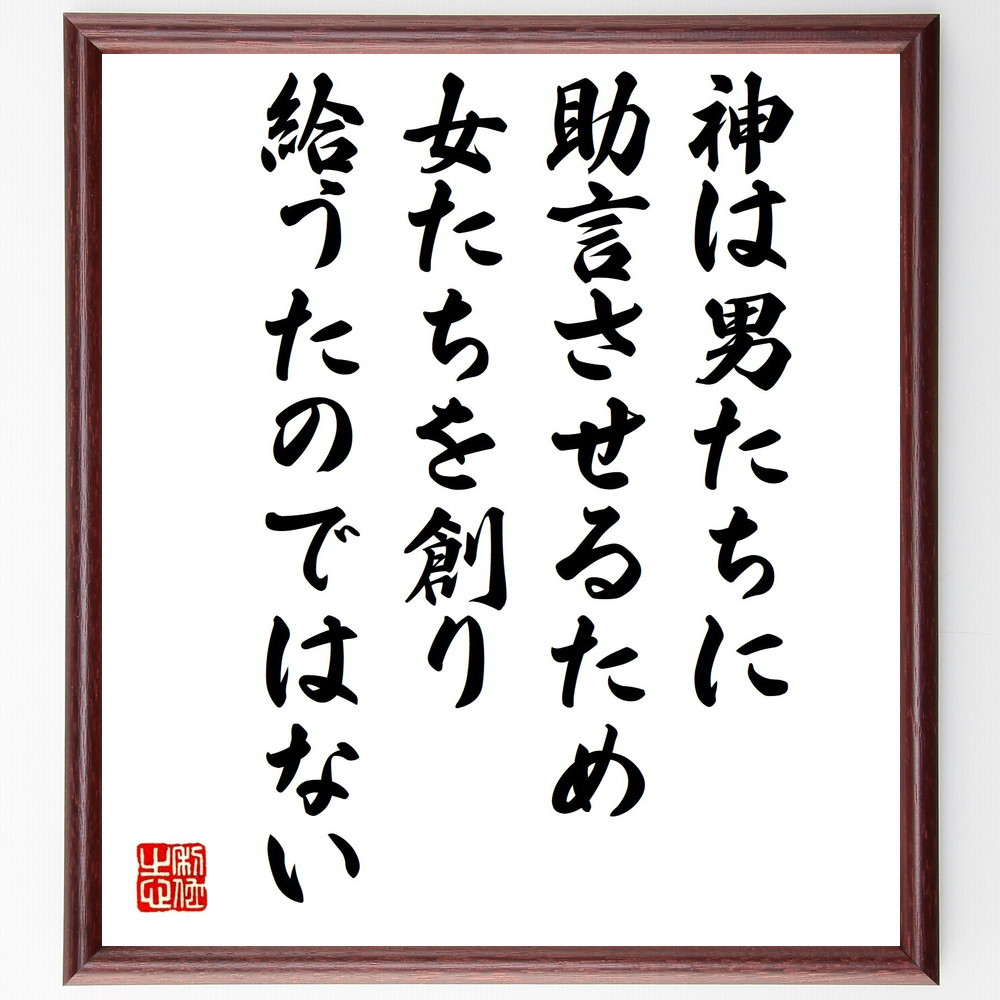 神は男たちに
助言させるため
女たちを創り
給うたのではない